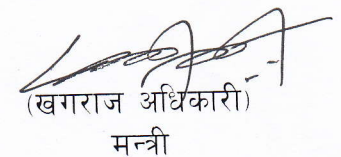 (खगराज अधिकारी)
मन्त्री